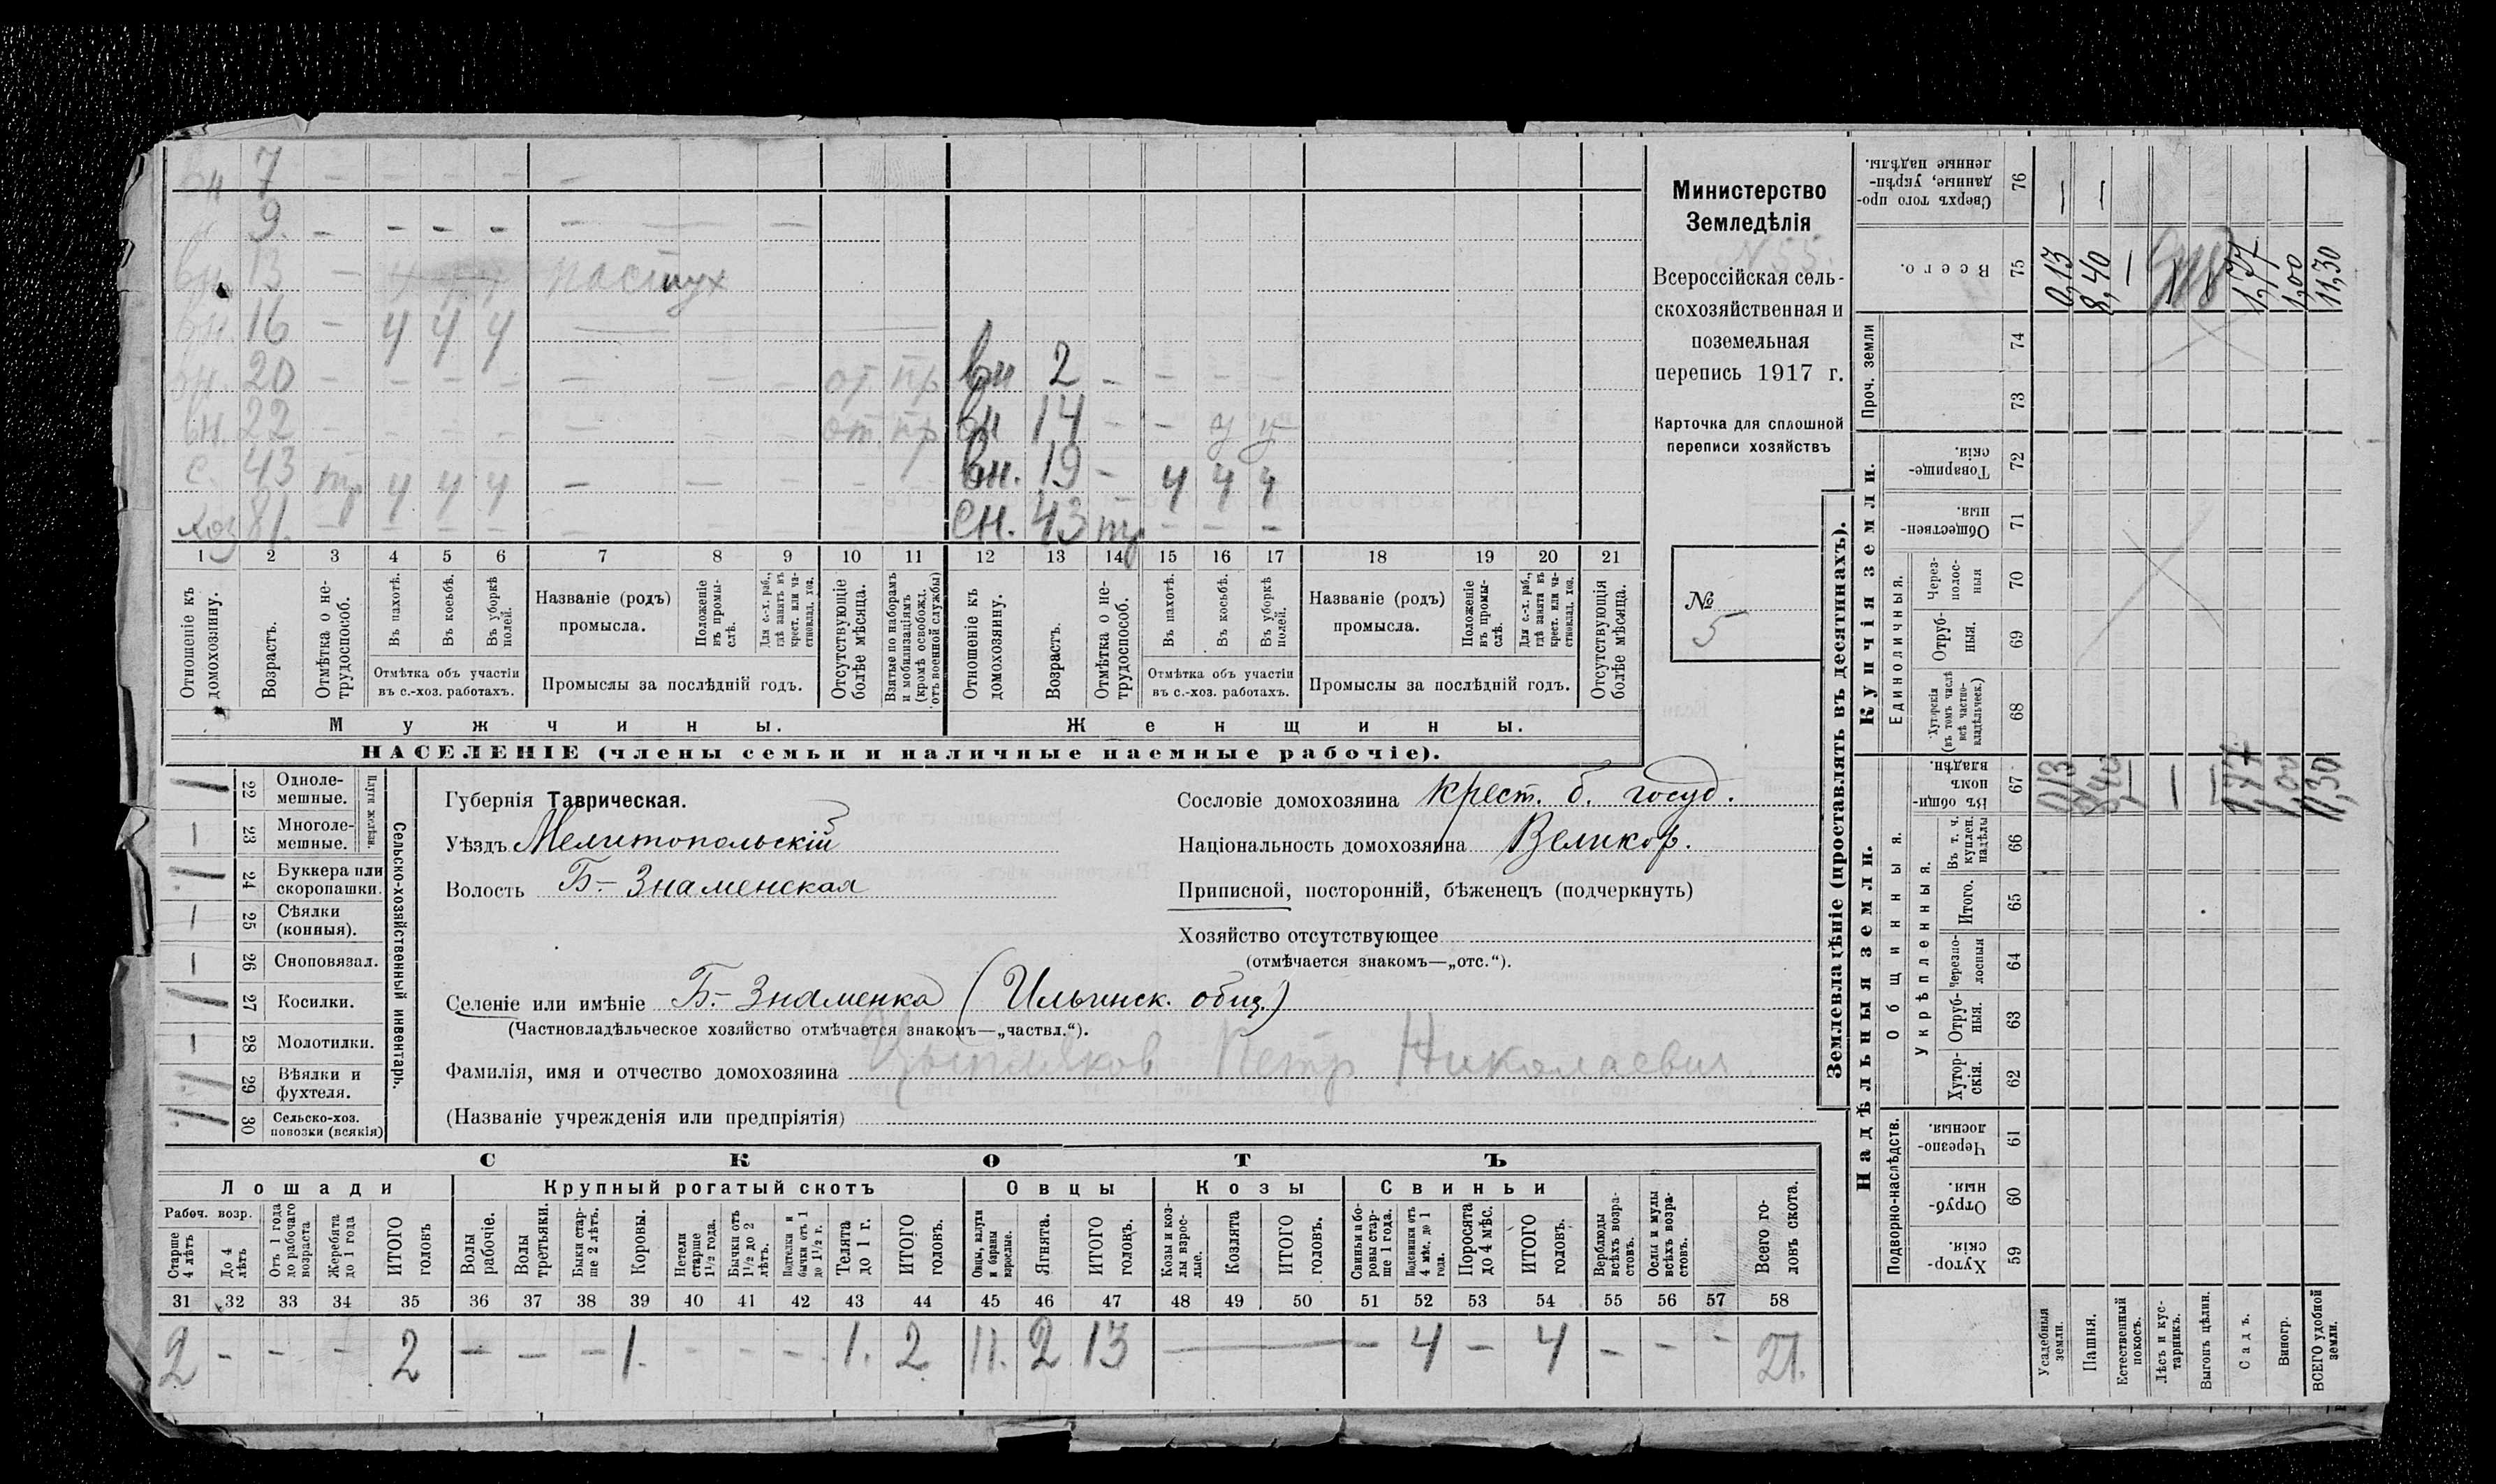 вн 7 – – – – –
9. – – – – – –
вн. 13 – пастух
вн. 16 – ч ч ч
вн. 20 – – – – – – – от. пр. вн 2 – – – –
вн. 22 – – – – – – – от. пр. вн 14 – – у у
с. 43 тр ч ч ч – – – – вн. 19 – ч ч ч
хоз 81. – – – – – сн. 43 тр – – –
1 2 3 4 5 6 7 8 9 10 11 12 13 14 15 16 17 18 19 20 21
Отношеніе къ домохозяину.
Возрастъ.
Отмѣтка о не-трудоспособ.
Въ пахотѣ.
Въ косьбѣ.
Въ уборкѣ полей.
Отмѣтка объ участіи въ с.-хоз. работахъ.
Названіе (родъ) промысла.
Положеніе въ промы-слѣ.
Для с.-х. раб., гдѣ занятъ въ крест. или ча-стновлад. хоз.
Промыслы за послѣдній годъ.
Отсутствующіе болѣе мѣсяца.
Взятые по наборамъ и мобилизаціямъ (кромѣ освобожд. отъ военной службы)
Отношеніе къ домохозяину.
Возрастъ.
Отмѣтка о не-трудоспособ.
Въ пахотѣ.
Въ косьбѣ.
Въ уборкѣ полей.
Отмѣтка объ участіи въ с.-хоз. работахъ.
Названіе (родъ) промысла.
Положеніе въ промы-слѣ.
Для с.-х. раб., гдѣ занята въ крест. или ча-стновлад. хоз.
Промыслы за послѣдній годъ.
Отсутствующія болѣе мѣсяца.
Мужчины. Женщины.
НАСЕЛЕНІЕ (члены семьи и наличные наемные рабочіе).
Министерство
Земледѣлія
N 55.
Всероссійская сель-
скохозяйственная и
поземельная
перепись 1917 г.
Карточка для сплошной
переписи хозяйствъ
№
5
Сельско-хозяйственный инвентарь.
Плуги желѣзн.
1 22 Одноле-мешные.
– 23 Многоле-мешные.
1 24 Буккера или скоропашки.
– 25 Сѣялки (конныя).
– 26 Сноповязал.
1 27 Косилки.
– 28 Молотилки.
1 29 Вѣялки и фухтеля.
1 30 Сельско-хоз. повозки (всякія)
Губернія Таврическая.
Уѣздъ Мелитопольскій
Волость Б.-Знаменская
Сословіе домохозяина крест. б. госуд.
Національность домохозяина Великор.
Приписной, посторонній, бѣженецъ (подчеркнуть)
Хозяйство отсутствующее
(отмѣчается знакомъ—„отс.“).
Селеніе или имѣніе Б.-Знаменка (Ильинск. общ.)
(Частновладѣльческое хозяйство отмѣчается знакомъ—„частвл.“).
Фамилія, имя и отчество домохозяина Цыпляков Петр Николаевич.
(Названіе учрежденія или предпріятія)
СКОТЪ
Лошади Крупный рогатый скотъ Овцы Козы Свиньи
Рабоч. возр.
Старше 4 лѣтъ
До 4 лѣтъ
Отъ 1 года до рабочаго возраста
Жеребята до 1 года
ИТОГО головъ
Волы рабочіе.
Волы третьяки.
Быки стар-ше 2 лѣтъ.
Коровы.
Нетели старше 1½ года.
Бычки отъ 1½ до 2 лѣтъ.
Подтелки и бычки отъ 1 до 1½ г.
Телята до 1 г.
ИТОГО головъ.
Овцы, валухи и бараны взрослые.
Ягнята.
ИТОГО головъ.
Козы и коз-лы взрос-лые.
Козлята
ИТОГО головъ.
Свиньи и бо-ровы стар-ше 1 года.
Подсвинки отъ 4 мѣс. до 1 года.
Поросята до 4 мѣс.
ИТОГО головъ.
Верблюды всѣхъ возра-стовъ.
Ослы и мулы всѣхъ возра-стовъ.
Всего го-ловъ скота.
31 32 33 34 35 36 37 38 39 40 41 42 43 44 45 46 47 48 49 50 51 52 53 54 55 56 57 58
2 – – – 2 – – – 1. – – – 1. 2 11. 2 13 – – 4 – 4 – – – 21.
Землевладѣніе (проставлять въ десятинахъ).
Надѣльныя земли. Купчія земли. Проч. земли
Подворно-наслѣдств.
Общинныя.
Укрѣпленныя.
Единоличныя.
Хутор-скія. 59
Отруб-ныя. 60
Черезпо-лосныя. 61
Хутор-скія. 62
Отруб-ныя. 63
Черезпо-лосныя 64
Итого. 65
Въ т. ч. куплен. надѣлы 66
Въ общи-номъ владѣн. 67
Хуторскія (въ томъ числѣ всѣ частно-владѣльческ.) 68
Отруб-ныя. 69
Через-полос-ныя 70
Обществен-ныя. 71
Товарище-скія. 72
73
74
Всего. 75
Сверхъ того про-данные, укрѣп-ленные надѣлы. 76
Усадебныя земли. 0,13 0,13 –
Пашня. 8,40 8,40 –
Естественный покосъ. – –
Лѣсъ и кус-тарникъ. –
Выгонъ цѣлин. –
Садъ. 1,77 1,77
Виногр. 1,00 1,00
ВСЕГО удобной земли. 11,30 11,30